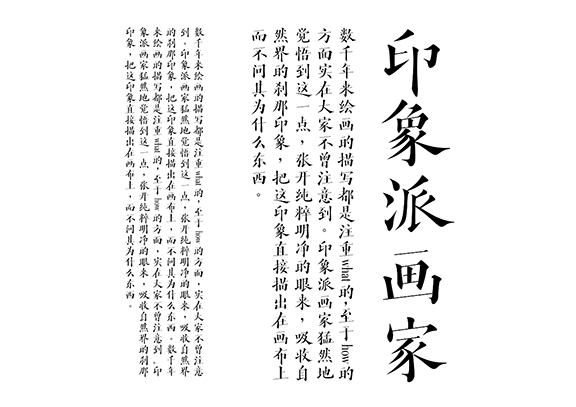 印象派画家
数千年来绘画的描写都是注重what的，至于how的
方面实在大家不曾注意到。印象派画家猛然地
觉悟到这一点，张开纯粹明净的眼来，吸收自
然界的刹那印象，把这印象直接描出在画布上
而不问其为什么东西。
数千年来绘画的描写都是注重what的，至于how的方面，实在大家不曾注意
到。印象派画家猛然地觉悟到这一点，张开纯粹明净的眼来，吸收自然界
的刹那印象，把这印象直接描出在画布上，而不问其为什么东西。数千年
来绘画的描写都是注重what的，至于how的方面，实在大家不曾注意到。印
象派画家猛然地觉悟到这一点，张开纯粹明净的眼来，吸收自然界的刹那
印象，把这印象直接描出在画布上，而不问其为什么东西。